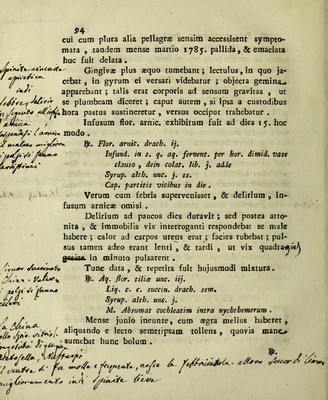 94
cui cum plura alia pellagræ sensim accessissent sympto-
mata, tandem mense martio 1785. pallida, & emaciata
huc fuit delata.
Gingivæ plus æquo tumebant; lectulus, in quo ja-
cebat, in gyrum ei versari videbatur; objecta gemina
apparebant; talis erat corporis ad sensum gravitas, ut
se plumbeam diceret; caput autem, si ipsa a custodibus
hora pastus sustineretur, versus occiput trahebatur.
Infusum flor. arnic. exhibitum fuit ad dies 15. hoc
modo.
℞. Flor. arnic. drach. ij.
Infund. in s. q. aq. fervent. per hor. dimid. vase
clauso, dein colat. lib. j. adde
Syrup. alth. unc. j. ss.
Cap. partitis vicibus in die.
Verum cum febris supervenisset, & delirium, in-
fusum arnicæ omisi.
Delirium ad paucos dies duravit; sed postea atto-
nita, & immobilis vix interroganti respondebat se male
habere; calor ad carpos urens erat; facies rubebat; pul-
sus tamen adeo erant lenti, & tardi, ut vix quadragies
in minuto pulsarent.
Tunc data, & repetita fuit hujusmodi mixtura.
℞. Aq. flor. tiliæ unc. iij.
Liq. c. c. succin. drach. sem.
Syrup. alth. unc. j.
M. Absumat cochleatim intra nychthemerum.
Mense junio ineunte, cum ægra melius haberet,
aliquando e lecto semetipsam tollens, quovis mane
sumebat hunc bolum.
℞.
Spinite
indi
febbre, delirio
arnica
i polsi si fanno
liquor succinato
China
polsi si fanno
la China
il ventre si fa molle e frequente, nasce la
miglioramento indi Spinite lieve